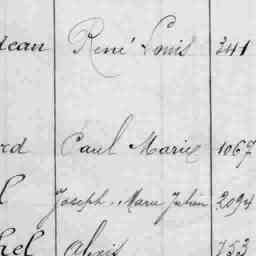 dean René Louis 341
rd Paul Marie 1067
l Joseph Marie Julien 2094
hel Alexis 753